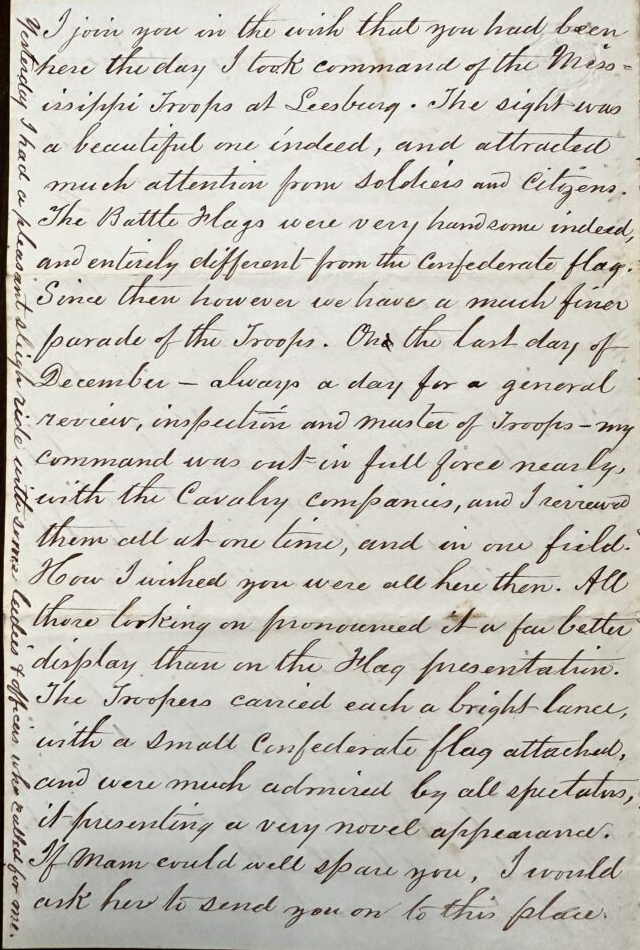 I join you in the wish that you had been
here the day I took command of the Miss=
issippi Troops at Leesburg. The sight was
a beautiful one indeed, and attracted
much attention from soldiers and Citizens.
The Battle Flags were very handsome indeed,
and entirely different from the Confederate flag.
Since then however we have a much finer
parade of the Troops. On the last day of
December – always a day for a general
review, inspection and muster of Troops – my
command was out in full force nearly,
with the Cavalry companies, and I reviewed
them all at one time, and in one field.
How I wished you were all here then. All
those looking on pronounced it a far better
display than on the Flag presentation.
The Troopers carried each a bright lance,
with a small Confederate flag attached,
and were much admired by all spectators,
it presenting a very novel appearance.
If Mam could well spare you, I would
ask her to send you on to this place.
Yesterday I had a pleasant sleigh ride with some ladies & officers who called for me.